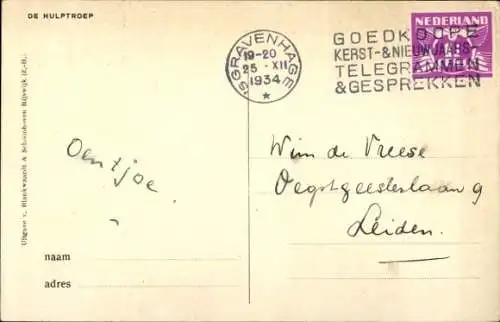 DE HULPTROEP
NEDERLAND
'S GRAVENHAGE
19-20
25 XII
1934
GOEDKOOPE
KERST- & NIEUWJAARS-
TELEGRAMMEN
& GESPREKKEN
Oentjoe.
Wim de Vreese
Oegstgeesterlaan 9
Leiden.
naam
adres
Uitgave v. Blankwaardt & Schoonhoven Rijswijk (Z.-H.)